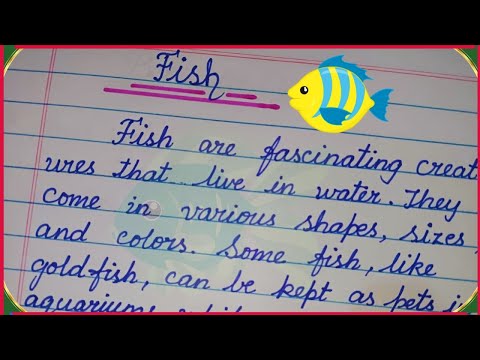 Fish
Fish are fascinating creat
ures that live in water. They
come in various shapes, sizes,
and colors. Some fish, like
goldfish, can be kept as pets i
aquariums